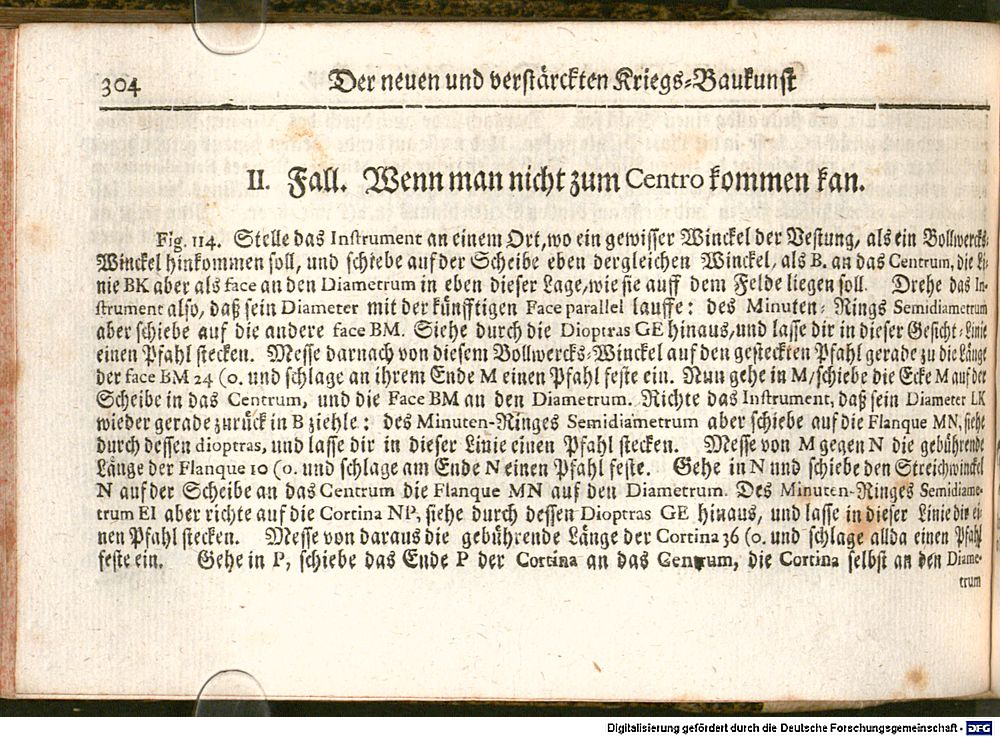 304 Der neuen und verstärckten Kriegs-Baukunst
II. Fall. Wenn man nicht zum Centro kommen kan.
Fig. 114. Stelle das Instrument an einem Ort, wo ein gewisser Winckel der Vestung, als ein Bollwercks-
Winckel hinkommen soll, und schiebe auf der Scheibe eben dergleichen Winckel, als B. an das Centrum, die Li-
nie BK aber als face an den Diametrum in eben dieser Lage, wie sie auff dem Felde liegen soll. Drehe das In-
strument also, daß sein Diameter mit der künfftigen Face parallel lauffe: des Minuten-Rings Semidiametrum
aber schiebe auf die andere face BM. Siehe durch die Dioptras GE hinaus, und lasse dir in dieser Gesicht-Linie
einen Pfahl stecken. Messe darnach von diesem Bollwercks-Winckel auf den gesteckten Pfahl gerade zu die Länge
der face BM 24 (0. und schlage an ihrem Ende M einen Pfahl feste ein. Nun gehe in M/schiebe die Ecke M auf der
Scheibe in das Centrum, und die Face BM an den Diametrum. Richte das Instrument, daß sein Diameter LK
wieder gerade zurück in B ziehle: des Minuten-Ringes Semidiametrum aber schiebe auf die Flanque MN, siehe
durch dessen dioptras, und lasse dir in dieser Linie einen Pfahl stecken. Messe von M gegen N die gebührende
Länge der Flanque 10 (0. und schlage am Ende N einen Pfahl feste. Gehe in N und schiebe den Streichwinckel
N auf der Scheibe an das Centrum die Flanque MN auf den Diametrum. Des Minuten-Ringes Semidiame-
trum EI aber richte auf die Cortina NP, siehe durch dessen Dioptras GE hinaus, und lasse in dieser Linie dir ei-
nen Pfahl stecken. Messe von daraus die gebührende Länge der Cortina 36 (0. und schlage allda einen Pfahl
feste ein. Gehe in P, schiebe das Ende P der Cortina an das Centrum, die Cortina selbst an den Diame-
trum
Digitalisierung gefördert durch die Deutsche Forschungsgemeinschaft - DFG